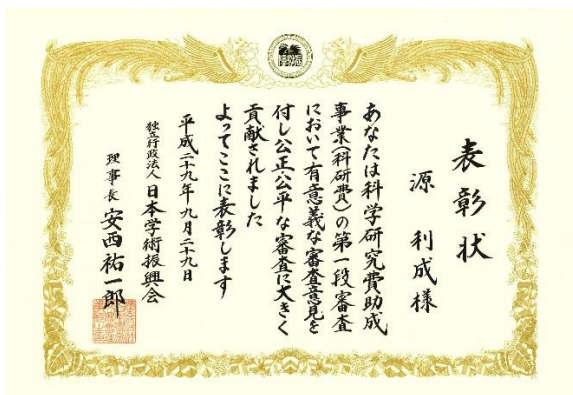 表彰状
源 利成 様
あなたは科学研究費助成
事業(科研費)の第一段審査
において有意義な審査意見を
付し公正公平な審査に大きく
貢献されました
よってここに表彰します
平成二十九年九月二十九日
独立行政法人 日本学術振興会
理事長 安西祐一郎